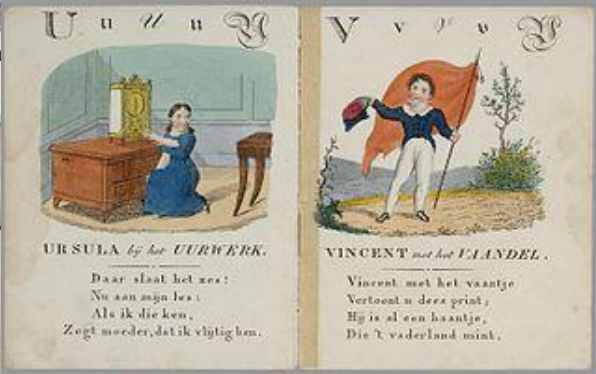 U u u u U
URSULA bij het UURWERK.
Daar slaat het zes!
Nu aan mijn les:
Als ik die ken,
Zegt moeder, dat ik vlijtig ben.
V v v v V
VINCENT met het VAANDEL.
Vincent met het vaantje
Vertoont u dees print;
Hij is al een haantje,
Die 't vaderland mint.